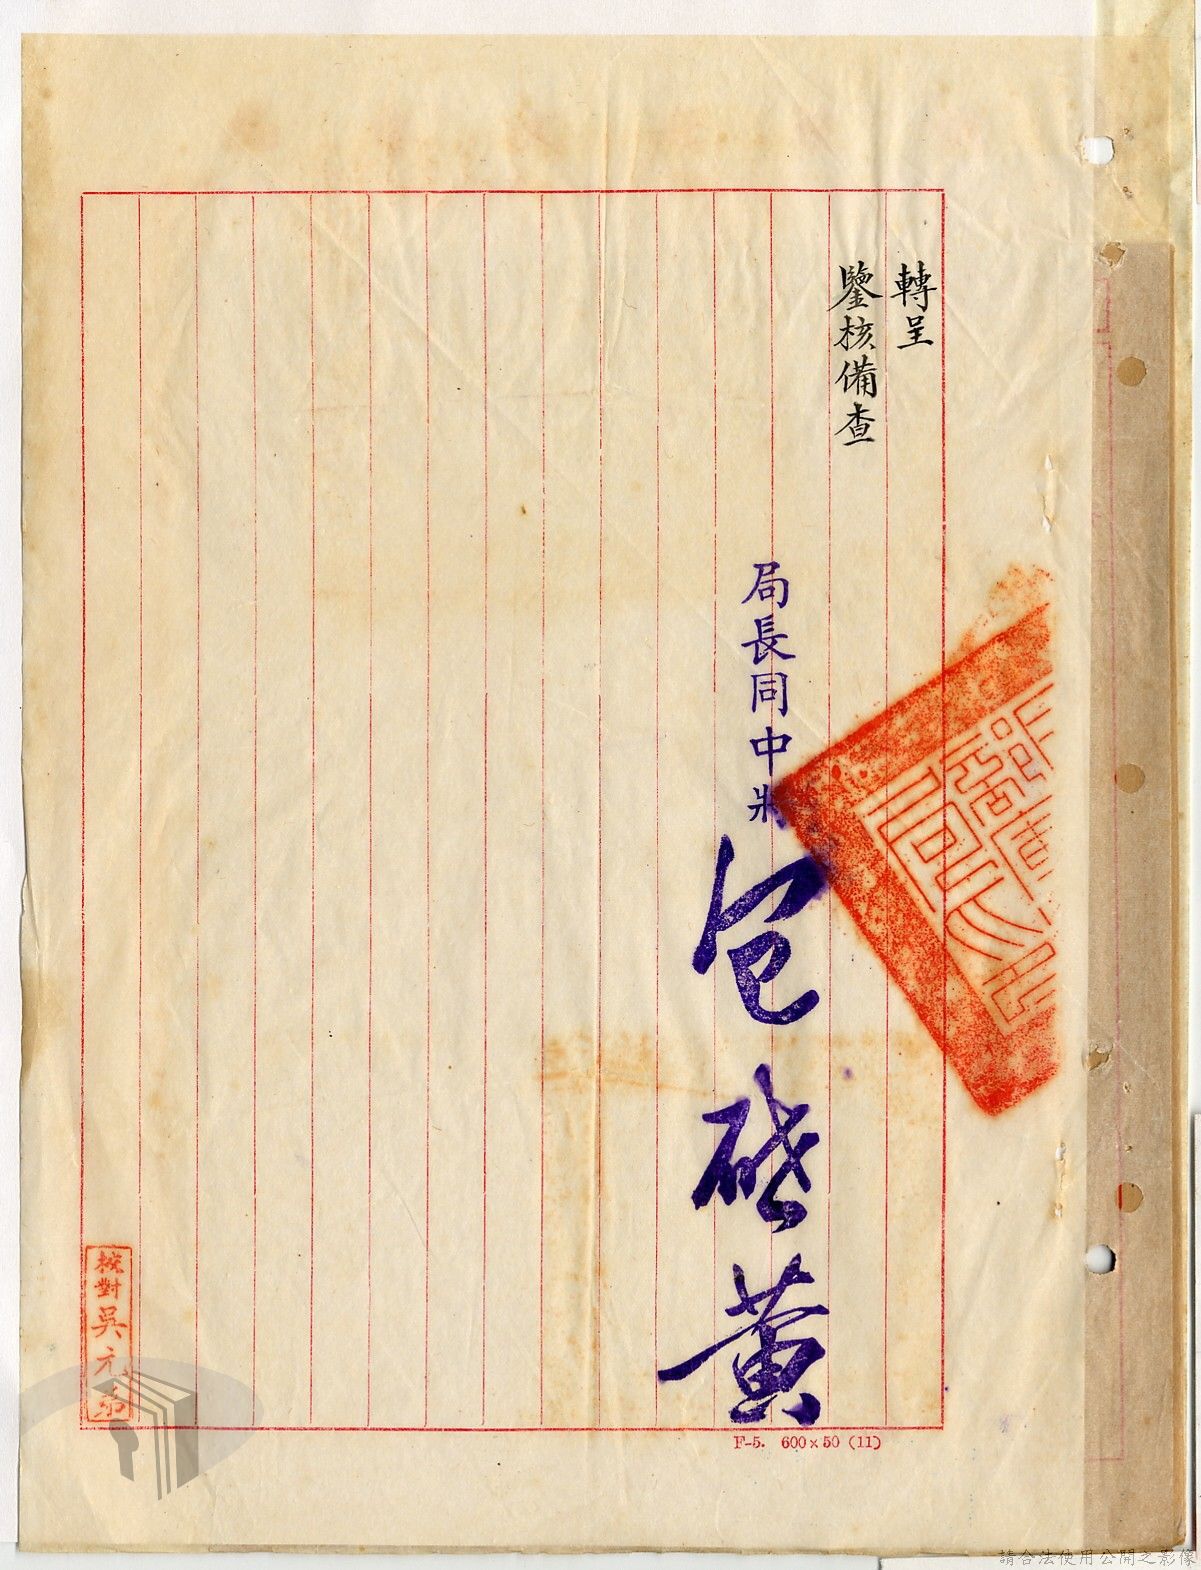 轉呈
鑒核備查
局長同中將
包啟黃
校對吳元
F-5. 600×50 (11)
請合法使用公開之影像